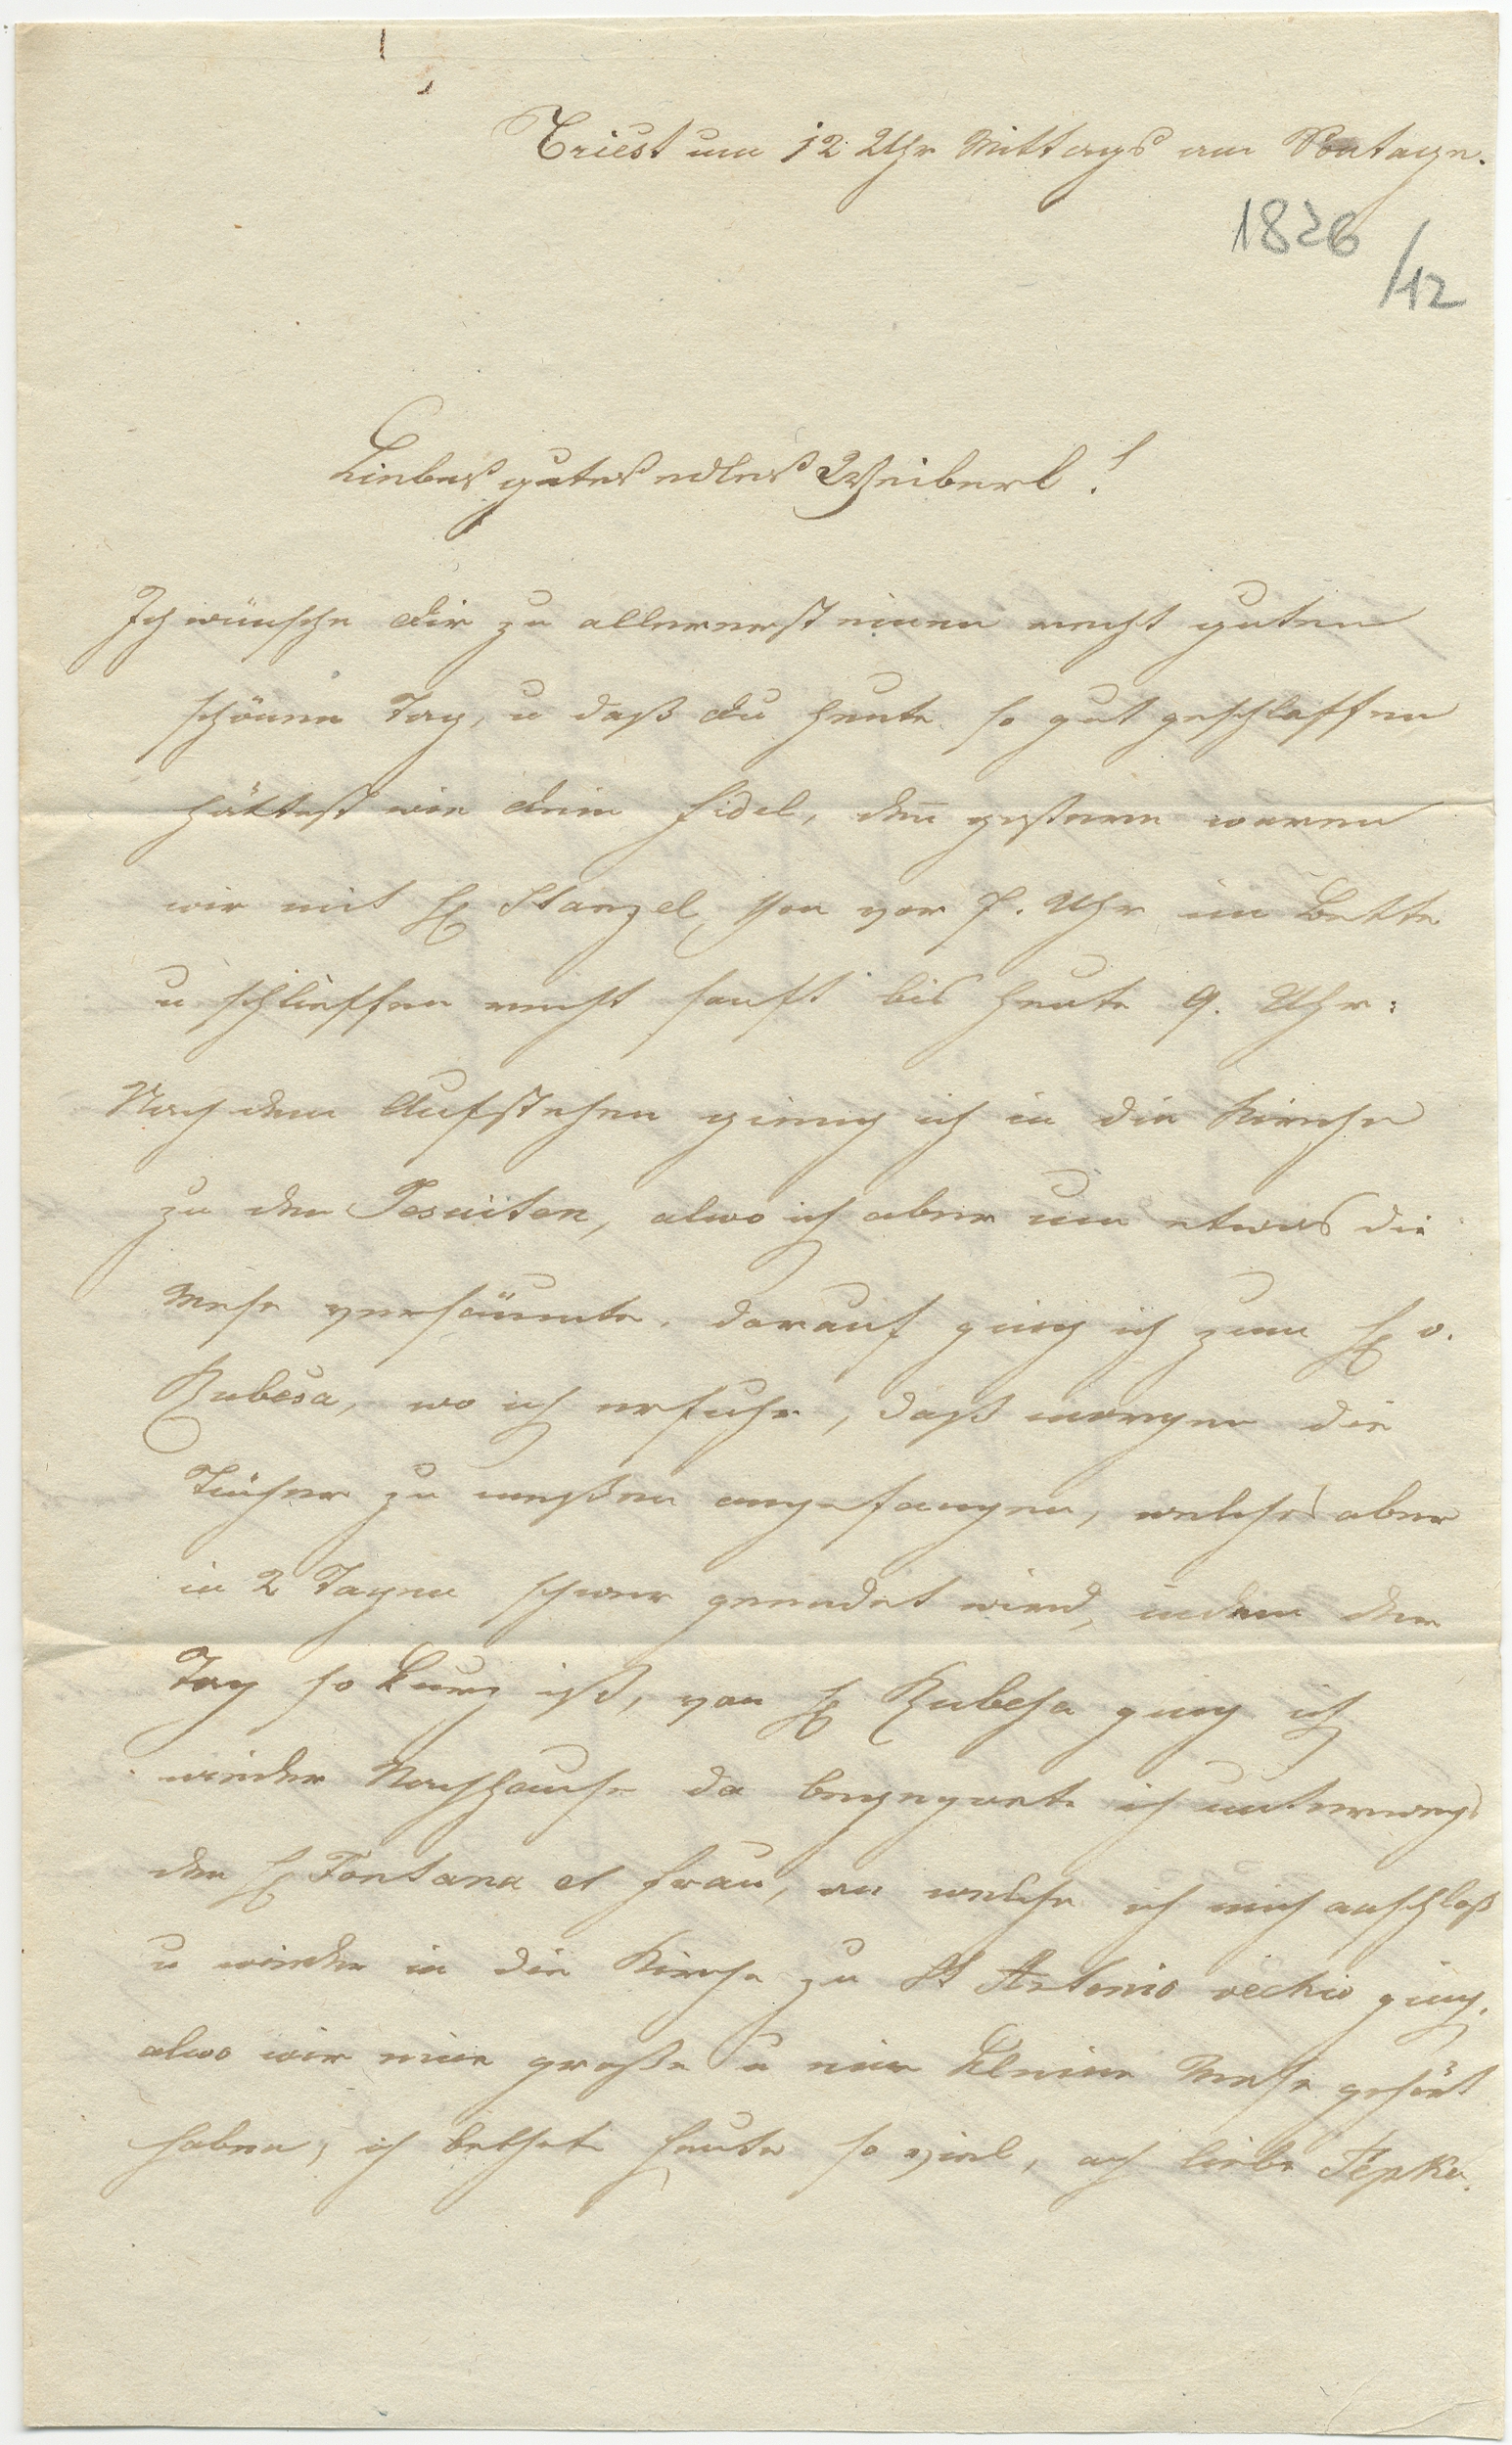 Triest um 12 Uhr Mittags am Sontage.
1826
/12
Liebes gutes edles Weiberl!
Ich wünsche dir zu allererst einen recht guten
schönen Tag, u daß du heute so gut geschlaffen
hättest wie dein Fidel, den̄ gestern waren
wir mit H Stanzel schon vor 7. Uhr im Bette
u schlieffen recht sanft bis heute 9. Uhr:
Nach dem Aufstehen gieng ich in die Kirche
zu den Jesuiten, alwo ich aber um etwas die
Messe versäumte. darauf ging ich zum H v.
Rubesa, wo ich erfuhr, daß morgen die
Tücher zu meßen angefangen, welches aber
in 2 Tagen schwer geendet wird, indem der
Tag so kurz ist, von H Rubesa ging ich
wieder Nachhause da begegnete ich unterwegs
den H Fontana et Frau, an welche ich mich anschloß
u wieder in die Kirche zu St Antonio vechio ging,
alwo wir eine große u eine kleine Messe gehört
haben, ich bethete heute so viel, ach liebe Pepka.